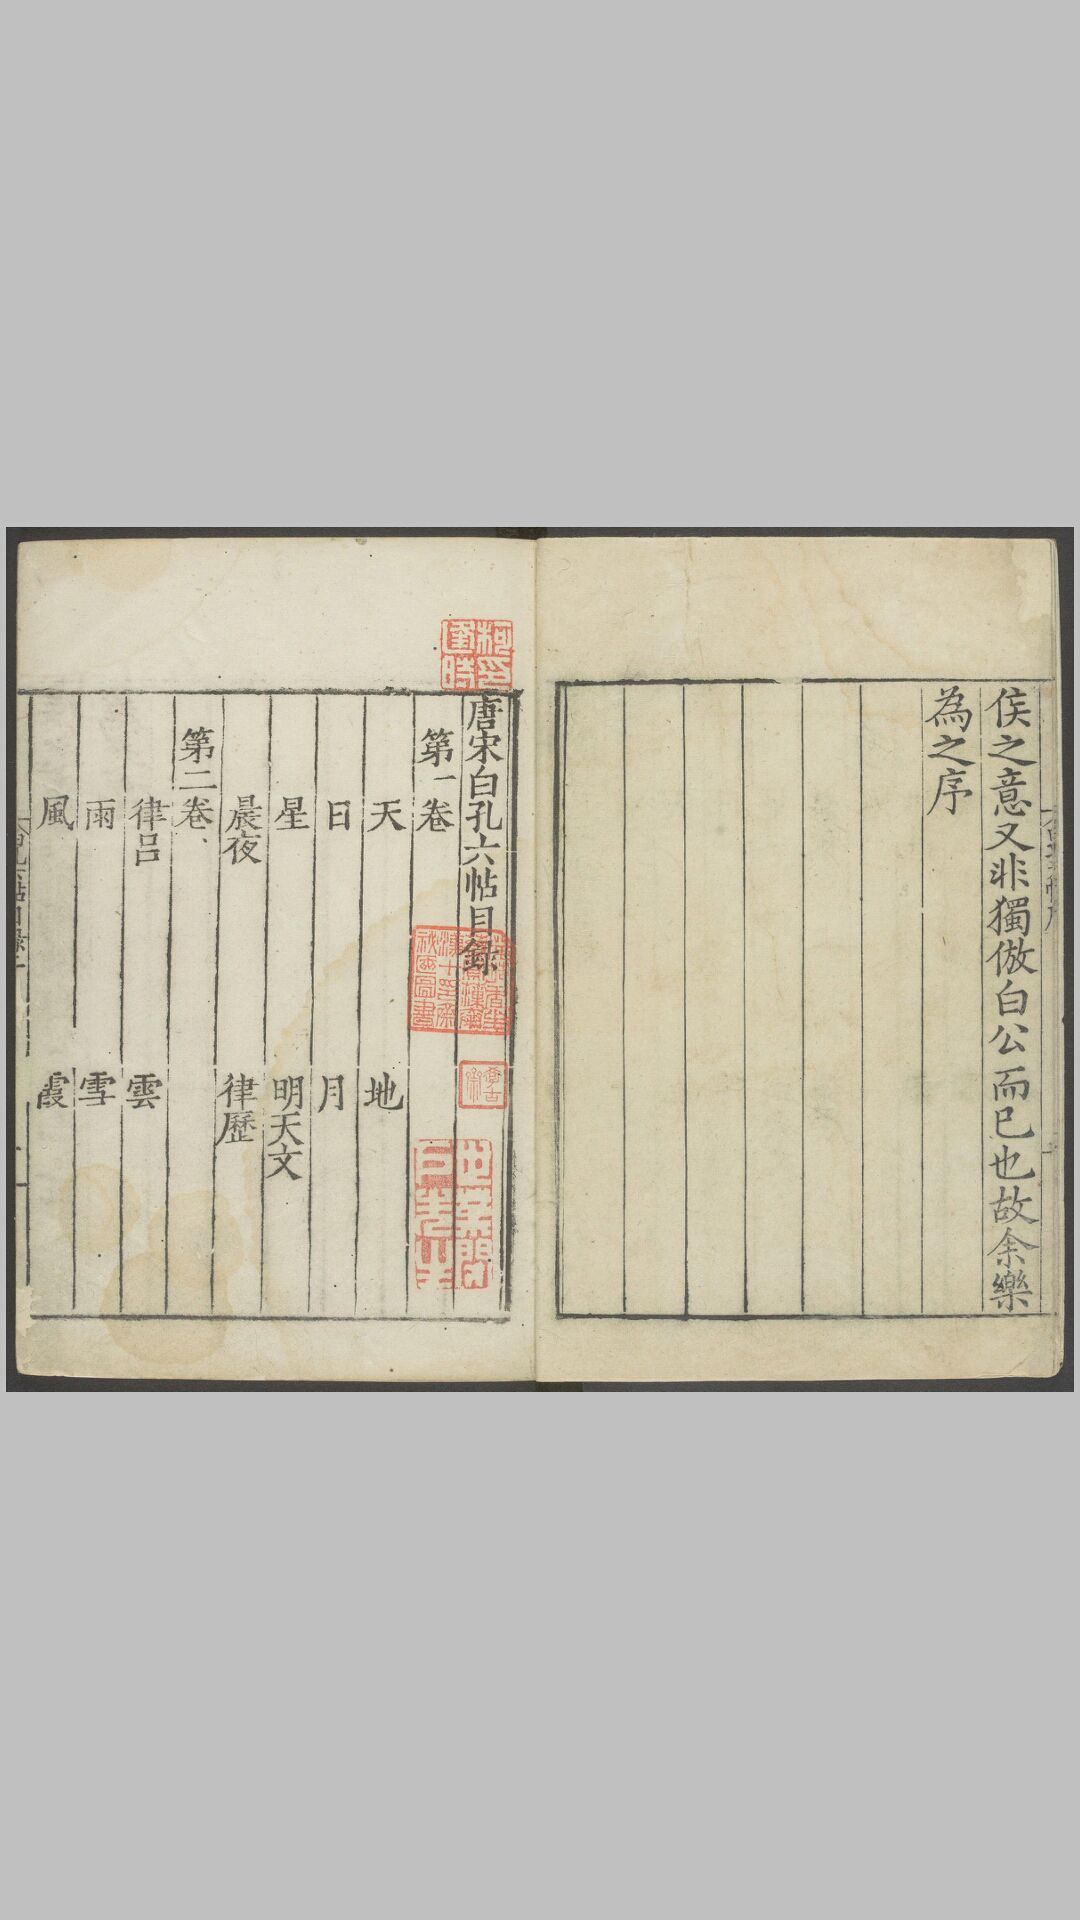 侯之意又非獨倣白公而已也故余樂
為之序
唐宋白孔六帖目録
第一卷
天 地
日 月
星 明天文
晨夜 律歷
第二卷
律呂 雲
雨 雪
風 霞